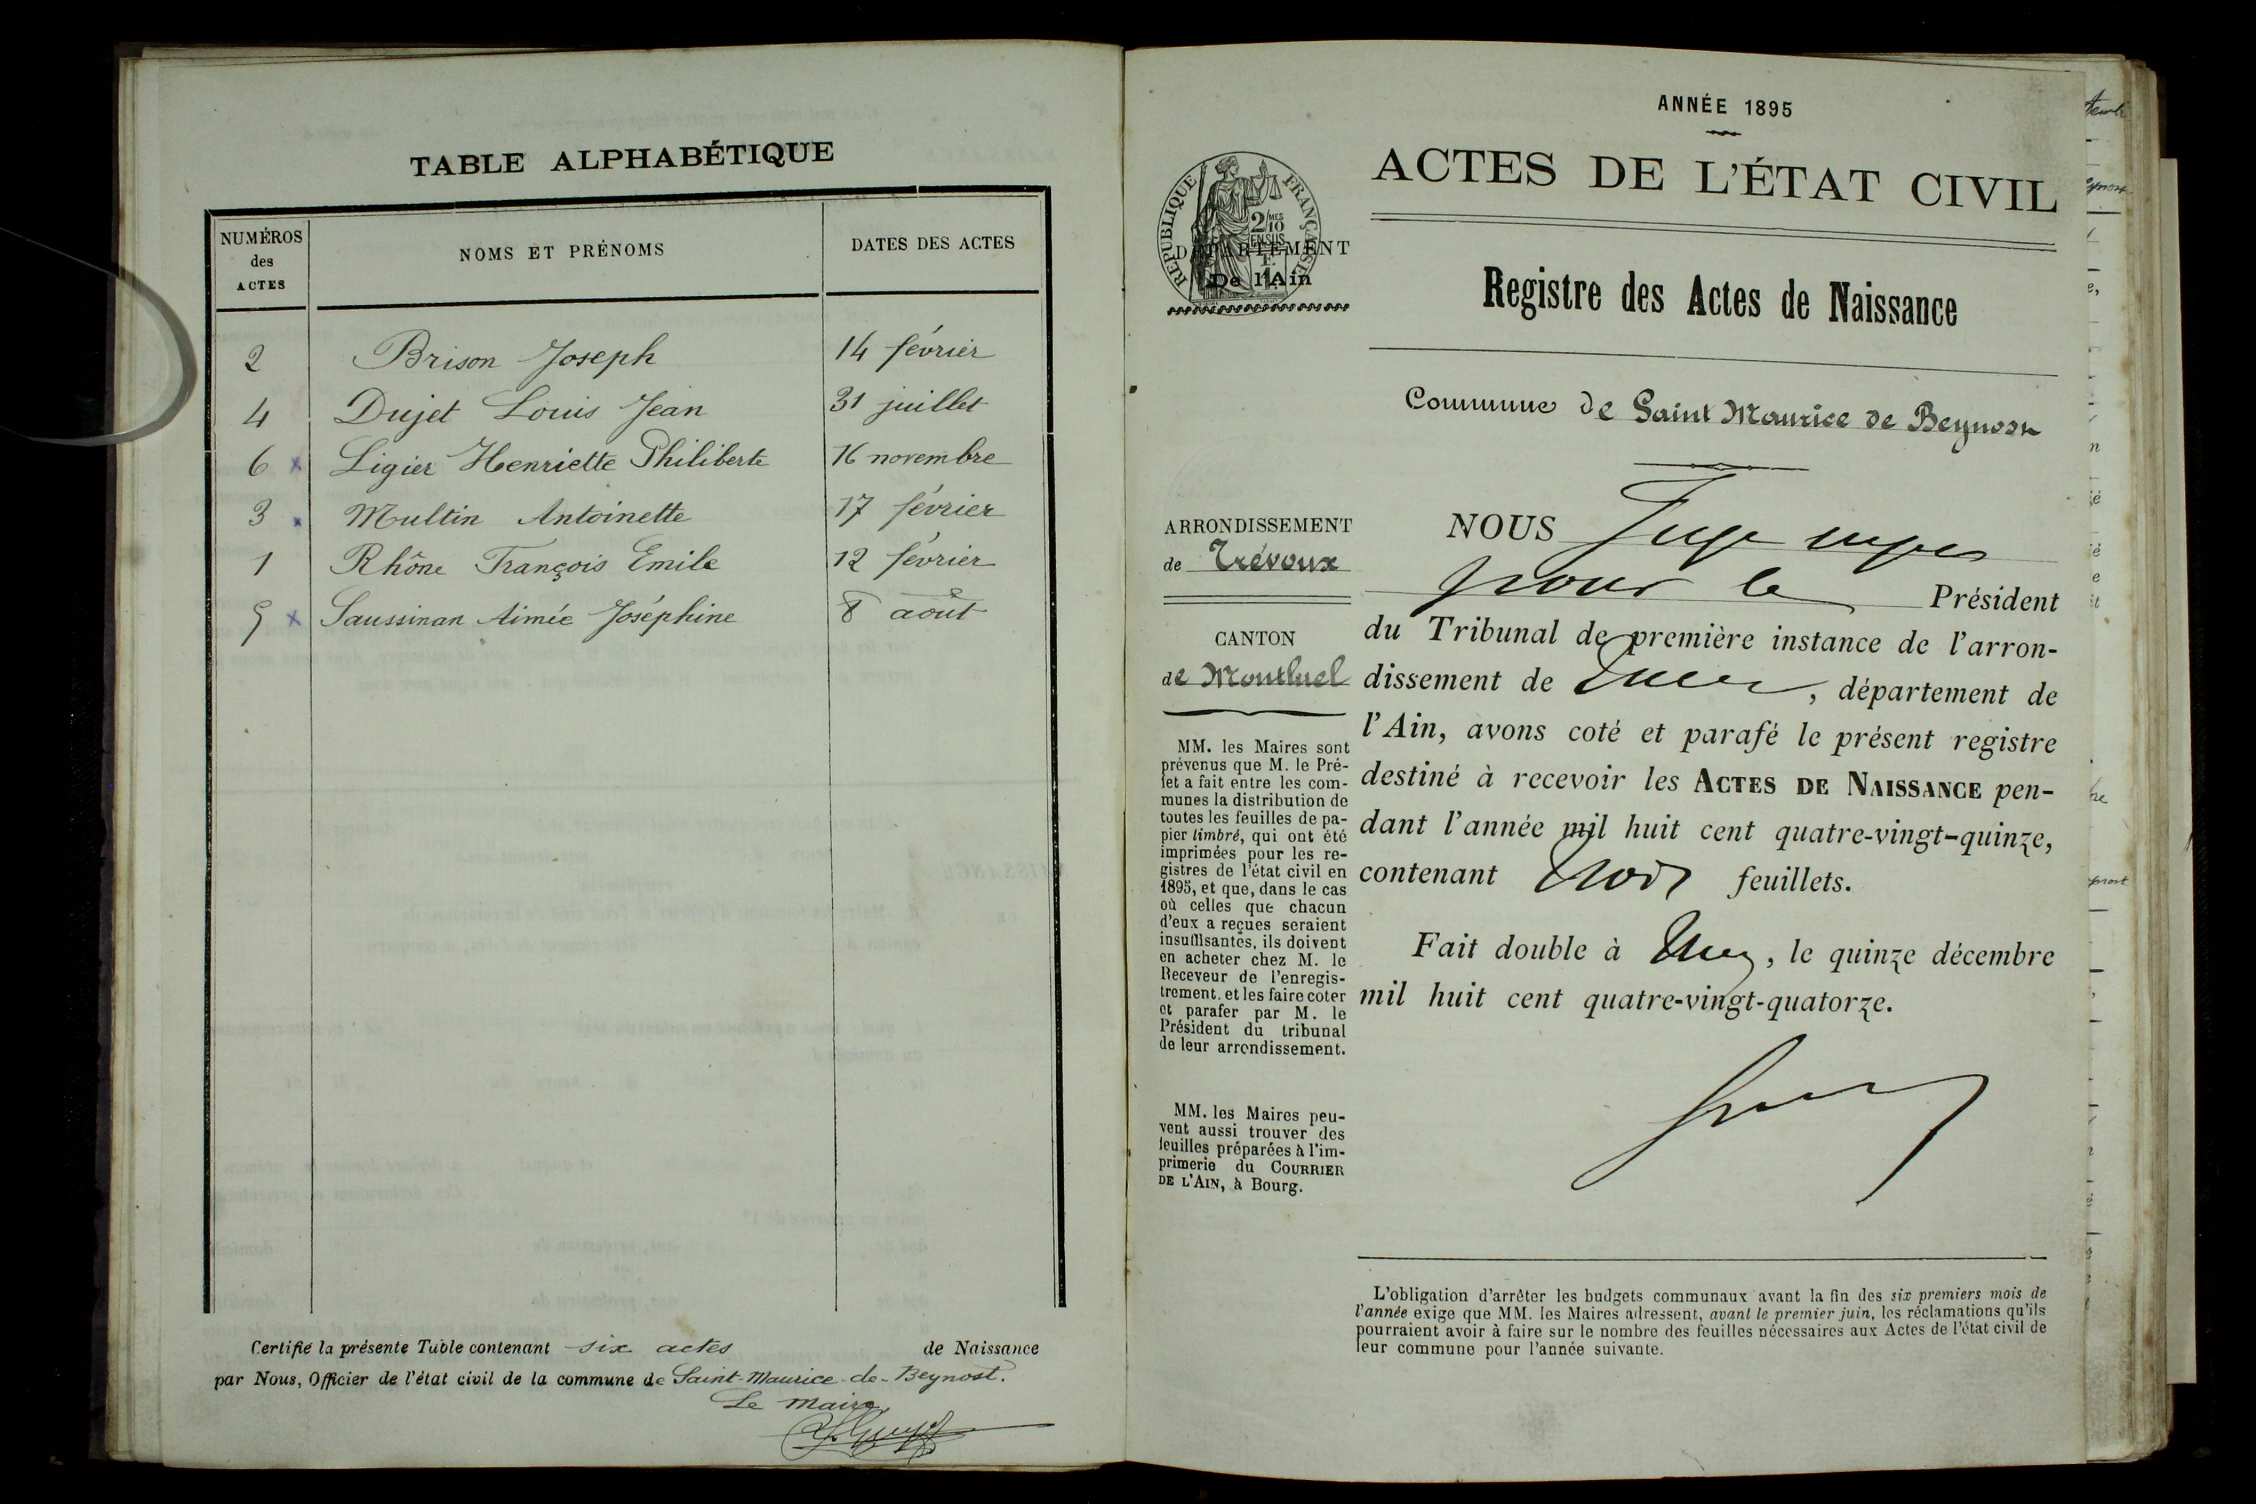 TABLE ALPHABÉTIQUE
NUMÉROS des ACTES
NOMS ET PRÉNOMS
DATES DES ACTES
2 Brison Joseph 14 février
4 Dujet Louis Jean 31 juillet
6 x Ligier Henriette Philiberte 16 novembre
3 x Multin Antoinette 17 février
1 Rhône François Emile 12 février
5 x Saussinan Aimée Joséphine 8 août
Certifié la présente Table contenant six actes de Naissance
par Nous, Officier de l'état civil de la commune de Saint-Maurice-de-Beynost.
Le maire
ANNÉE 1895
ACTES DE L'ÉTAT CIVIL
RÉPUBLIQUE FRANÇAISE
2 MES
10
EN SUS
DÉPARTEMENT
De l'Ain
Registre des Actes de Naissance
Commune de Saint Maurice de Beynost
ARRONDISSEMENT
de Trévoux
CANTON
de Montluel
MM. les Maires sont
prévenus que M. le Pré-
fet a fait entre les com-
munes la distribution de
toutes les feuilles de pa-
pier timbré, qui ont été
imprimées pour les re-
gistres de l'état civil en
1895, et que, dans le cas
où celles que chacun
d'eux a reçues seraient
insuffisantes, ils doivent
en acheter chez M. le
Receveur de l'enregis-
trement, et les faire coter
et parafer par M. le
Président du tribunal
de leur arrondissement.
MM. les Maires peu-
vent aussi trouver des
feuilles préparées à l'im-
primerie du COURRIER
DE L'AIN, à Bourg.
NOUS Juge
pour le Président
du Tribunal de première instance de l'arron-
dissement de , département de
l'Ain, avons coté et parafé le présent registre
destiné à recevoir les ACTES DE NAISSANCE pen-
dant l'année mil huit cent quatre-vingt-quinze,
contenant trois feuillets.
Fait double à , le quinze décembre
mil huit cent quatre-vingt-quatorze.
L'obligation d'arrêter les budgets communaux avant la fin des six premiers mois de
l'année exige que MM. les Maires adressent, avant le premier juin, les réclamations qu'ils
pourraient avoir à faire sur le nombre des feuilles nécessaires aux Actes de l'état civil de
leur commune pour l'année suivante.